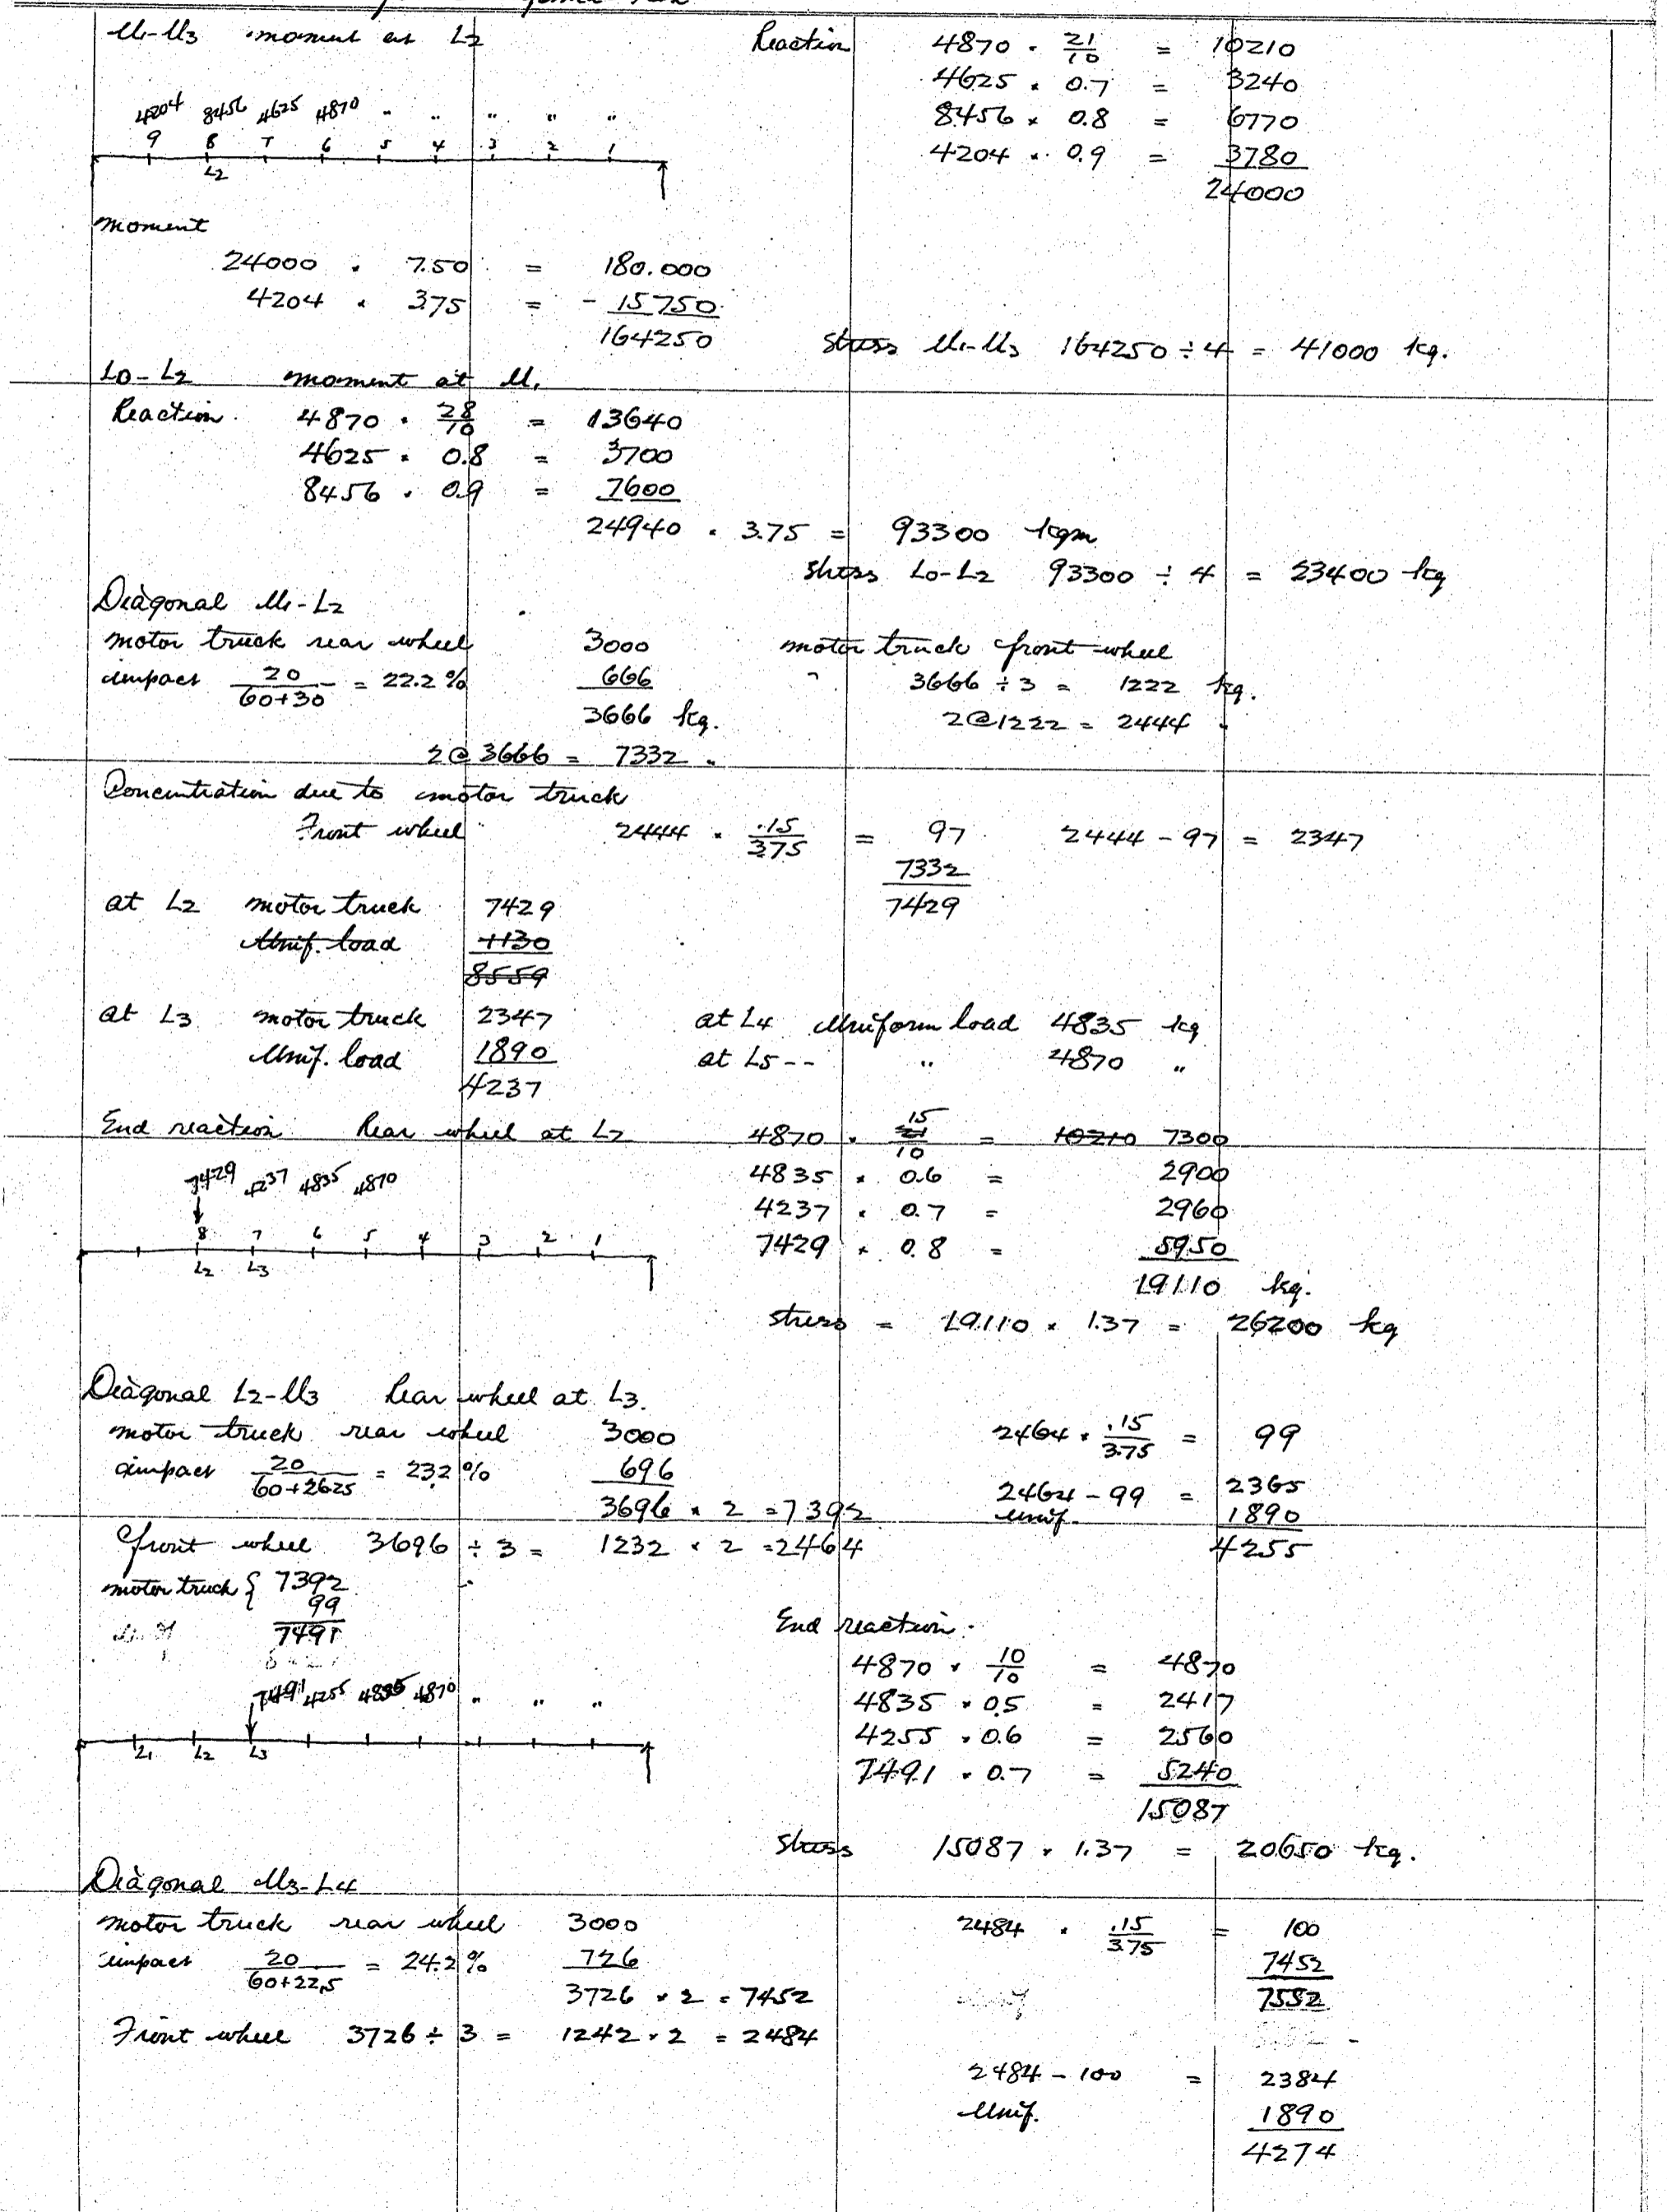 U1-U3 moment at L2
Reaction 4870 × 21/10 = 10210
4625 × 0.7 = 3240
8456 × 0.8 = 6770
4204 × 0.9 = 3780
24000
4204 8456 4625 4870 " " " " "
9 8 7 6 5 4 3 2 1
L2
moment
24000 × 7.50 = 180.000
4204 × 3.75 = - 15750
164250
Stress U1-U3 164250 ÷ 4 = 41000 kg.
L0-L2 moment at U1
Reaction. 4870 × 28/10 = 13640
4625 × 0.8 = 3700
8456 × 0.9 = 7600
24940 × 3.75 = 93300 kgm
Stress L0-L2 93300 ÷ 4 = 23400 kg
Diagonal U1-L2
motor truck rear wheel 3000
impact 20/60+30 = 22.2% 666
3666 kg.
2@3666 = 7332 "
motor truck front wheel
3666 ÷ 3 = 1222 kg.
2@1222 = 2444 "
Concentration due to motor truck
Front wheel 2444 × .15/3.75 = 97 2444 - 97 = 2347
7332
7429
at L2 motor truck 7429
Unif. load 1130
8559
at L3 motor truck 2347
Unif. load 1890
4237
at L4 Uniform load 4835 kg
at L5 -- " 4870 "
End reaction Rear wheel at L2
4870 × 21 15/10 = 10210 7300
4835 × 0.6 = 2900
4237 × 0.7 = 2960
7429 × 0.8 = 5950
19110 kg.
7429 4237 4835 4870
8 7 6 5 4 3 2 1
L2 L3
stress = 19110 × 1.37 = 26200 kg
Diagonal L2-U3 Rear wheel at L3.
motor truck rear wheel 3000
impact 20/60+26.25 = 23.2% 696
3696 × 2 = 7392
Front wheel 3696 ÷ 3 = 1232 × 2 = 2464
2464 × .15/3.75 = 99
2464 - 99 = 2365
Unif. 1890
4255
motor truck { 7392
99
7491
7491 4255 4835 4870 " " "
L1 L2 L3
End reaction.
4870 × 10/10 = 4870
4835 × 0.5 = 2417
4255 × 0.6 = 2560
7491 × 0.7 = 5240
15087
Stress 15087 × 1.37 = 20650 kg.
Diagonal U3-L4
motor truck rear wheel 3000
impact 20/60+22.5 = 24.2% 726
3726 × 2 = 7452
Front wheel 3726 ÷ 3 = 1242 × 2 = 2484
2484 × .15/3.75 = 100
7452
7552
2484 - 100 = 2384
Unif. 1890
4274